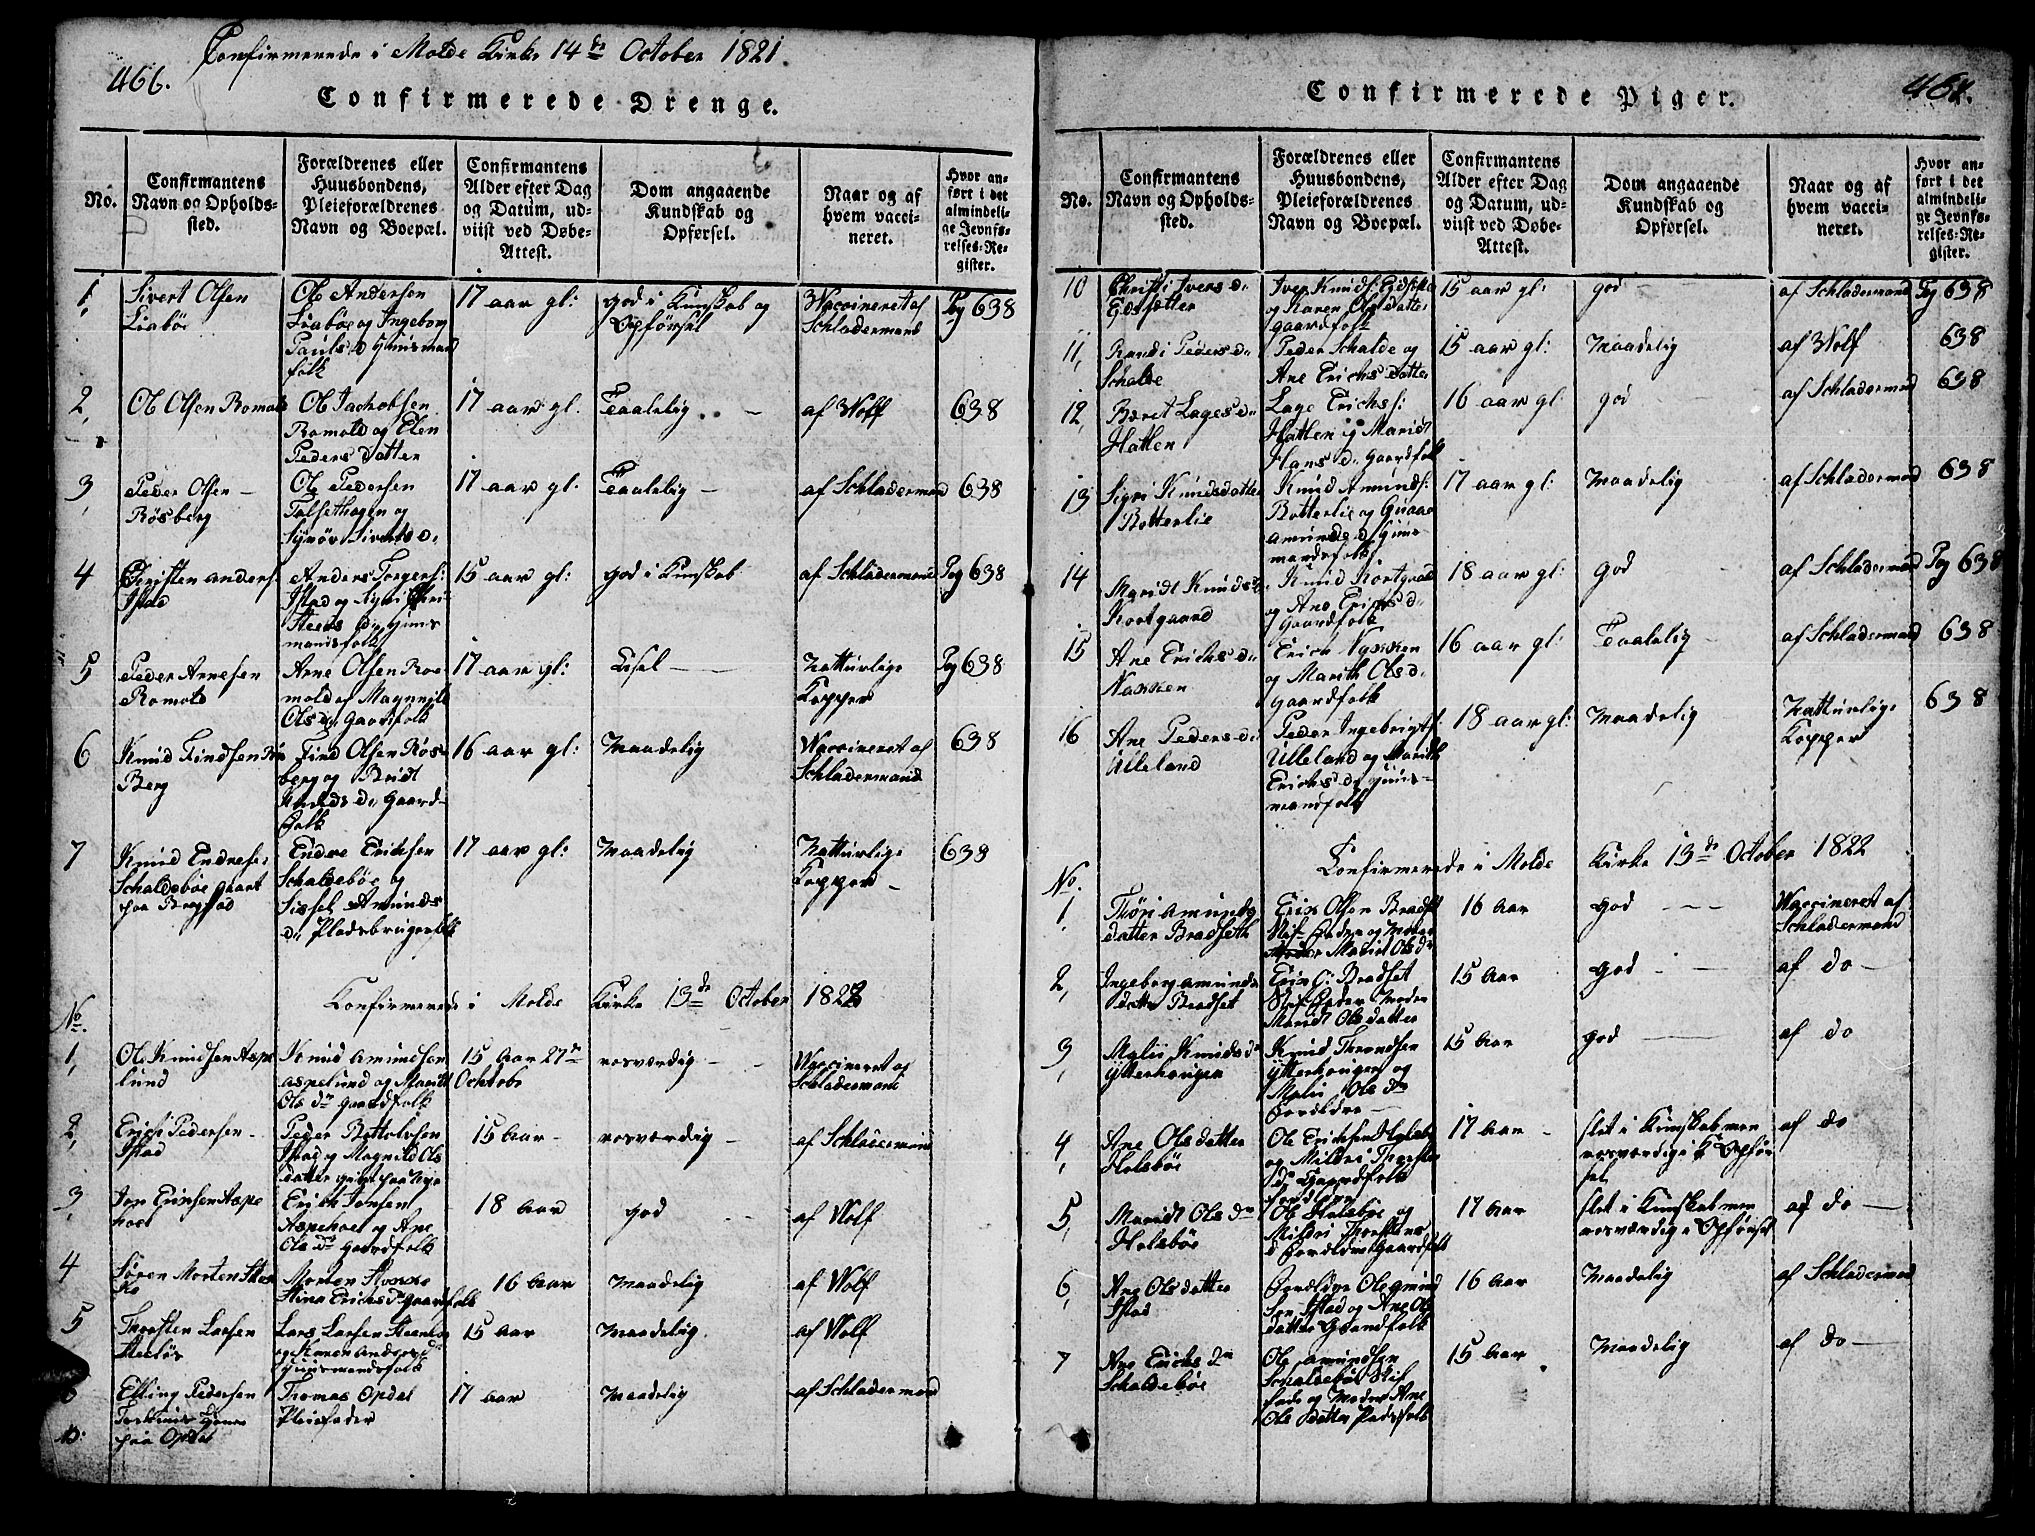 Confirmerede i Molde Kirke 14de October 1821.
466.
Confirmerede Drenge.
No.
Confirmantens Navn og Opholds-sted.
Forældrenes eller Huusbondens, Pleieforældrenes Navn og Boepæl.
Confirmantens Alder efter Dag og Datum, ud-viist ved Døbe-Attest.
Dom angaaende Kundskab og Opførsel.
Naar og af hvem vacci-neret.
Hvor an-ført i det almindeli-ge Jevnfø-relses-Re-gister.
1, Sivert Olsen
Liabøe
Ole Andersen
Liabøe og Ingeborg
Pauls D Huusmand
folk
17 aar gl:
god i Kunskab og
Opførsel
Waccineret af
Schladermand
Pag 638
2, Ole Olsen Romold
Ole Jachobsen
Romold og Elen
Peders Datter
17 aar gl.
Taalelig
af Wolf
638
3, Peder Olsen
Røsberg
Ole Pedersen
Talsethagen og
Synøv Siverts D.
17 aar gl.
Taalelig
af Schladermand
638
4 Christen Anders:
Istad
Anders Torgers:
Istad og Sigri Chri-
stens D Huus
mandsfolk
15 aar gl:
god i Kunskab
af Schladermand
Pag 638
5 Peder Arnesen
Romold
Arne Olsen Ro-
mold og Magnild
Ols D. Gaardfolk
17 aar gl:
Lisel
Nattürlige
Kopper
Pag 638
6 Knud Findsen Røs
Berg
Find Olsen Røs-
berg og Brit
Knuds D. Gaard-
folk
16 aar gl:
Maadelig
Waccineret af
Schladermand
638
7 Knud Endresen
Schaldebøe
paa Bergstad
Endre Erichsen
Schaldebøe og
Sissel Amunds
D. Pladsbrugerfolk
17 aar gl:
Maadelig
Nattürlige
Kopper
638
Konfirmerede i Molde Kirke 13de October 1822
No.
1, Ole Knudsen Aspe
lund
Knud Amundsen
Aspelund og Marit
Ols Dr Gaardfolk
15 Aar 27de
Ochtobr
rosværdig
Waccineret af
Schladermand
2, Erich Pedersen
Istad
Peder Bottolvsen
Istad og Magnild Ols
datter
15 Aar
rosværdig
af Schladermand
3, Jon Erichsen Aspe
hoel
Erich Jonsen
Aspehoel og Ane
Ols Dr Gaardfolk
18 Aar
god
af Wolf
4 Søren Morten Stok
ke
Morten Stokke
Stina Erichs Dr Gaardfolk
16 Aar
Maadelig
af Wolf
5 Thorsten Larsen
Lars Larsen
og Karen Anders D
Huusmandsfolk
15 Aar
Maadelig.
af Wolf
6 Elling Pedersen
paa Opdal
Thomas Opdal
Pleiefader
17 aar
Maadelig
af Schladermand
Confirmerede Piger.
No.
Confirmantens Navn og Opholds-sted.
Forældrenes eller Huusbondens, Pleieforældrenes Navn og Boepæl.
Confirmantens Alder efter Dag og Datum, ud-viist ved Døbe-Attest.
Dom angaaende Kundskab og Opførsel.
Naar og af hvem vacci-neret.
Hvor an-ført i det almindeli-ge Jevnfø-relses-Re-gister.
10 Christi Ivers D.
Eidsæter
Iver Knuds:
og Karen Olsdatter
gaardfolk
15 aar gl:
god
af Schladermand
Pag 638
11, Randi Peders D.
Schalde
Peder Schalde og
Ane Erichs Datter
15 aar gl:
Maadelig
af Wolf
638
12, Beret Lages D.
Hatlen
Lage Erichs:
Hatlen og Marit
Hans D. Gaardfolk
16 aar gl:
god
af Schladermand
638
13 Sigri Knudsdatter
Botterlie
Knud Amunds:
Botterlie og
Amunds D Huus-
mandsfolk
17 aar gl:
Maadelig
af Schladermand
638
14 Marit Knuds D
Kortgaard
Knud Kortgaard
og Ane Erichs D.
Gaardfolk
18 aar gl:
god
af Schladermand
Pag 638
15 Ane Erichs D.
Nakken
Erich Nakken
og Marith Ols D.
Gaardfolk
16 aar gl:
Taalelig
af Schladermand
638
16 Ane Peders D.
Ulleland
Peder Ingebrigts:
Ulleland og Marith
Erichs D. Huus-
mandfolk
18 aar gl:
Maadelig
Nattürlige
Kopper
638
Konfirmerede i Molde Kirke 13de October 1822
No.
1, Amunds
datter Bradseth
Erik Olsen Bradset
Stif Fader og Moder
Marit Ols Dr
16 Aar
god
Waccineret af
Schladermand
2, Ingeborg Amunds
datter Bradset
Erik O: Bradset
Stif Fader Moder
Marit Olsdatter
15 Aar
god
af do
3, Malii Knuds Dr
Ytterhougen
Knud Throndsen
Ytterhougen og
Malii Ols Dr
Foreldre
15 Aar
god
af do
4, Ane Olsdatter
Holsbøe
Ole Erichsen Holsbøe
og Mildri Thorsten
Dr Gaardfolk
17 Aar
slet i Kunskab men
rosværdig i Opfør
sel
af do
5, Marit Ols Dr
Holsbøe
Ole Holsbøe og
Mildri Thorstens
D Foreldre Gaardfolk
17 Aar
slet i Kunskab men
rosværdig i Opførsel
af do
6, Ane Olsdatter
Istad
Foreldre Ole Gund
sen Istad og Ane Ols
datter Gaardfolk
16 Aar
Maadelig
af Schladermand
7 Ane Erichs Dr
Schaldebøe
Ole Amundsen
Schaldebøe Stif
fader og Moder Ane
Ols Datter Pladsfolk
15 Aar
Maadelig
af do